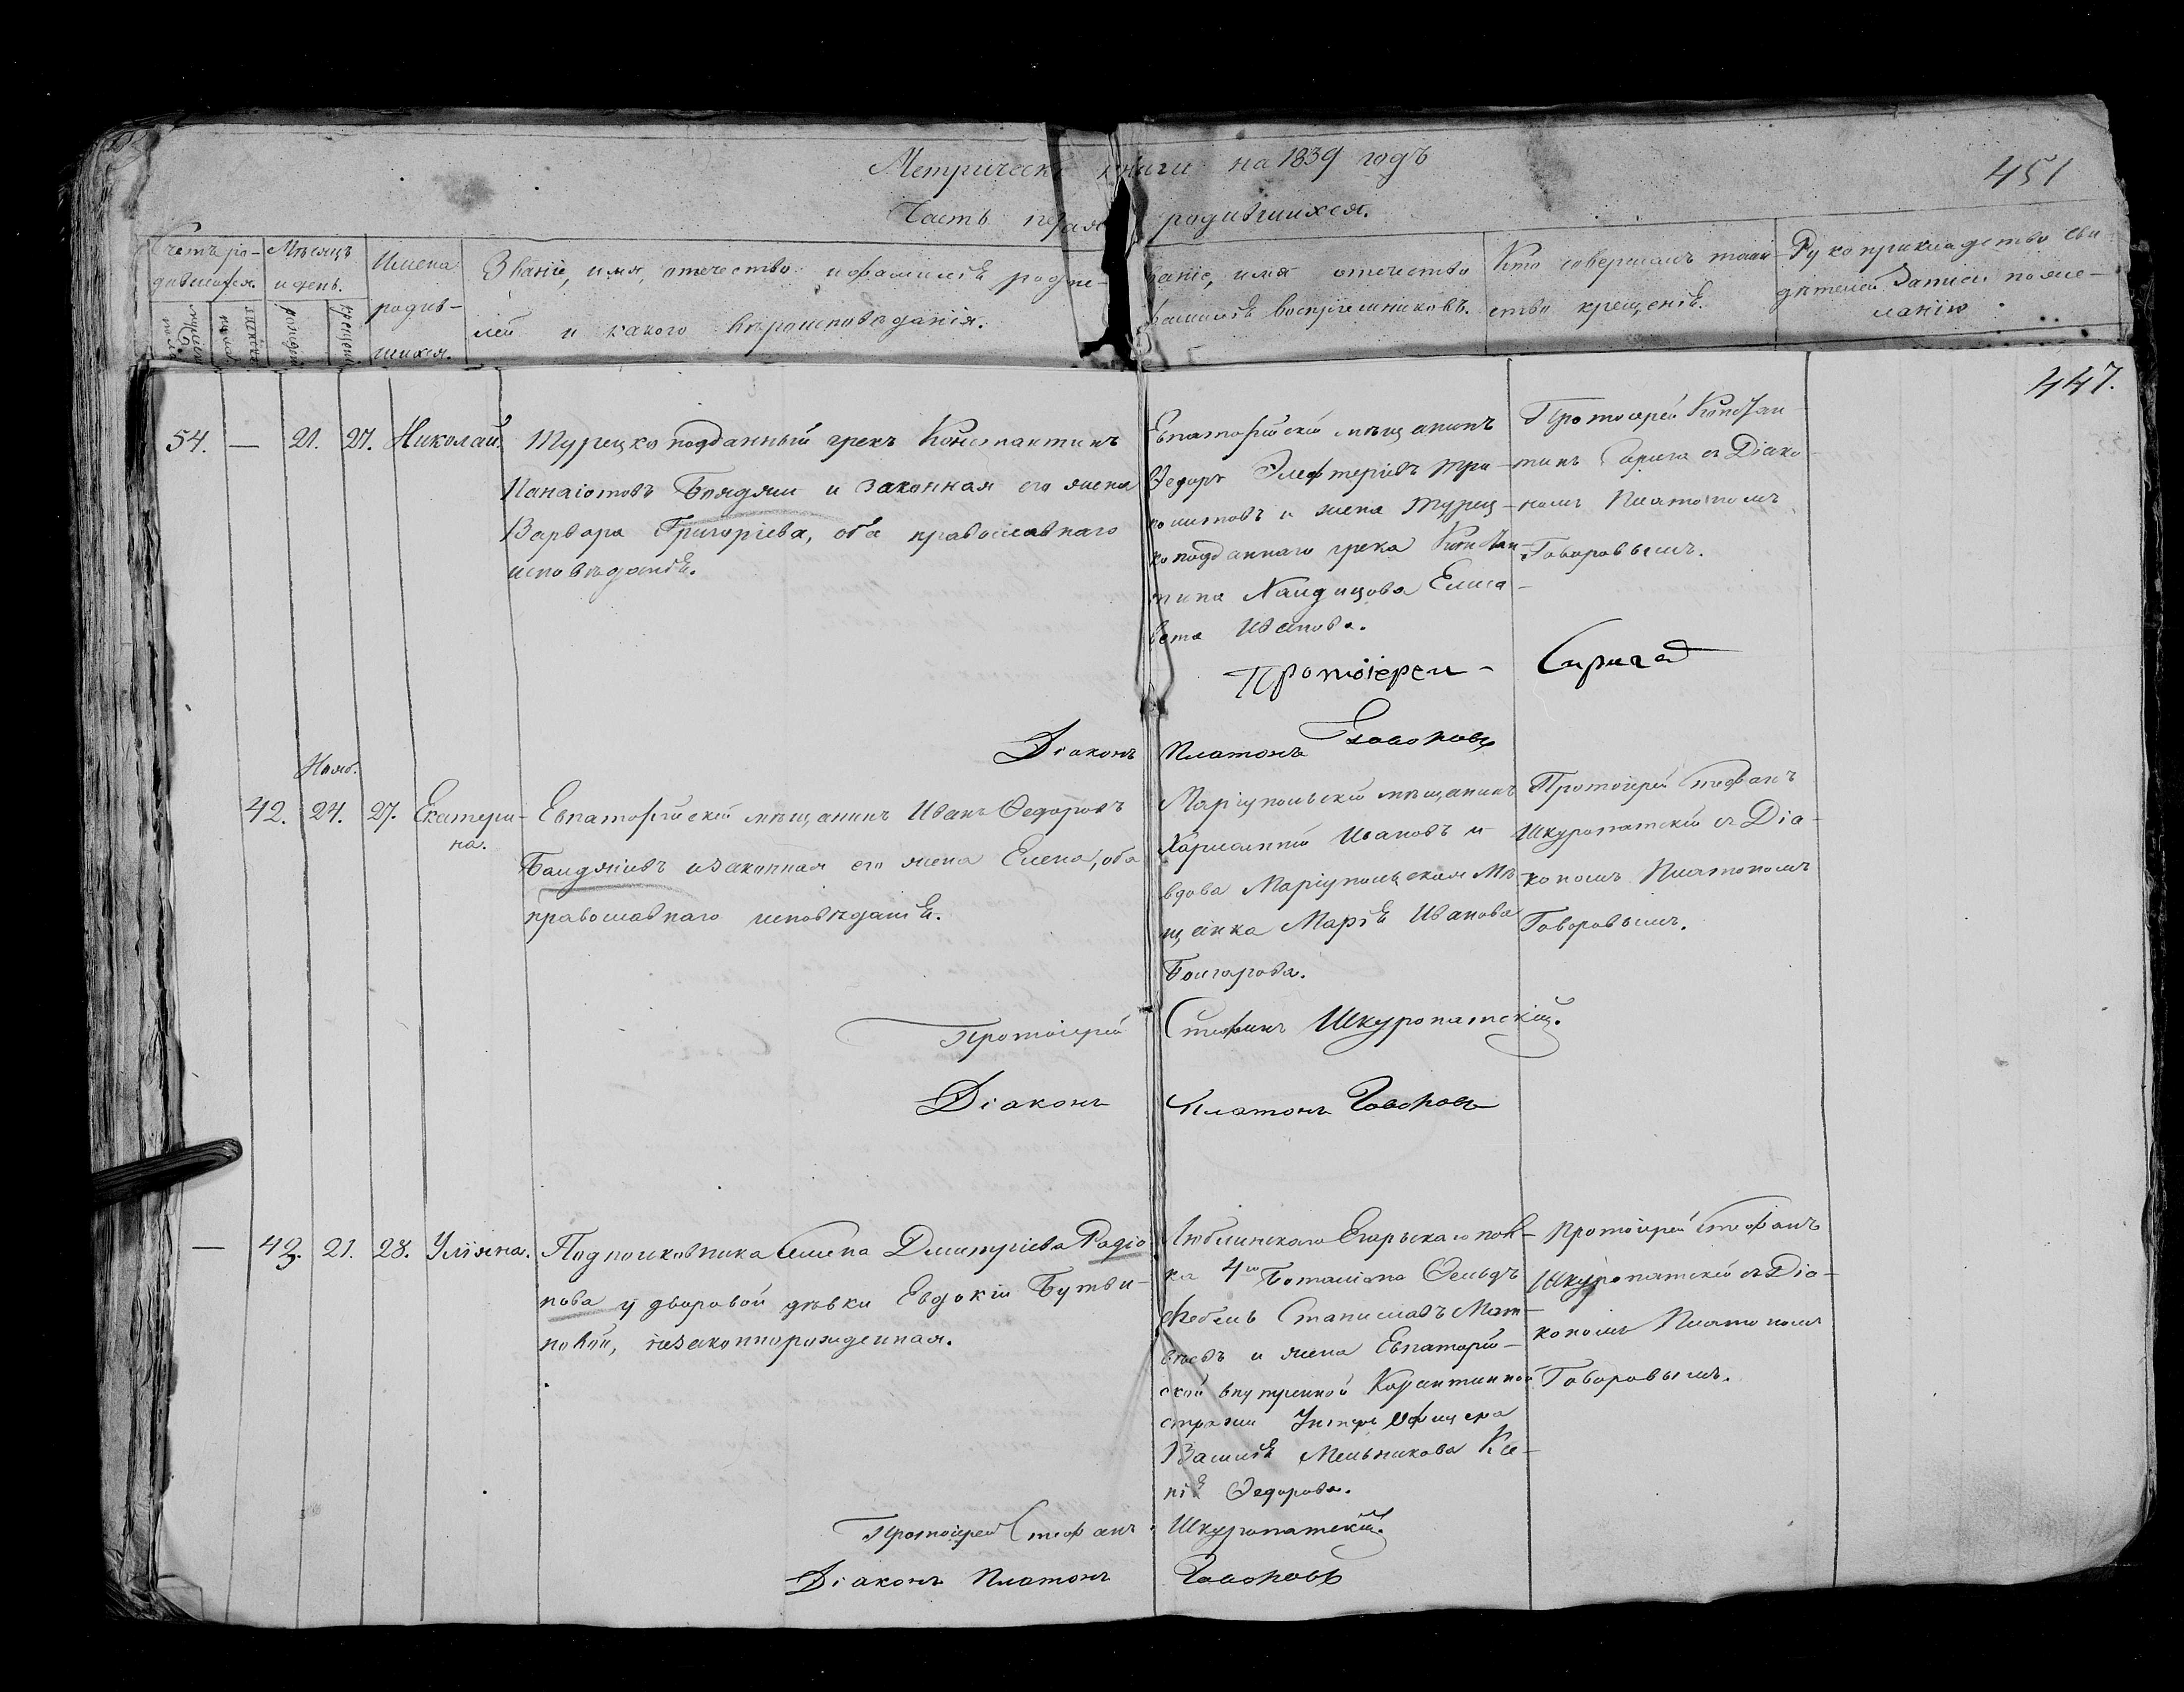 Метрическ книги на 1839 годъ
451
Часть первая родившихся.
Счетъ ро-
дившихся.
Мѣсяцъ
и день.
Имена
родив-
шихся.
Званіе, имя, отечество и фамилія родите-
лей и какого вѣроисповѣданія.
Званіе, имя отечество
фамилія воспріемниковъ.
Кто совершалъ таин-
ство крещенія.
Рукоприкладство сви-
дѣтелей записи по же-
ланію
рожденія
крещенія
447.
54. — 21. 27. Николай.
Турецкоподданный грекъ Константинъ
Панаіотовъ и законная его жена
Варвара Григоріева, оба православнаго
исповѣданія.
Евпаторійскій мѣщанинъ
Ѳедоръ Элефтеріевъ Три-
и жена Турец-
коподданнаго грека Констан-
тина Елиса-
вета Иванова.
Протоіерей Констан-
тинъ Спирига съ Діако-
номъ Платономъ
Говоровымъ.
Протоіерей - Спирига
Діаконъ Платонъ Говоровъ
Нояб.
42. 24. 27. Екатери-
на.
Евпаторійскій мѣщанинъ Иванъ Ѳедоровъ
и законная его жена Елена, оба
православнаго исповѣданія.
Маріупольскій мѣщанинъ
Харлампій Ивановъ и
вдова Маріупольская Мѣ-
щанка Марія Иванова
Болгарова.
Протоіерей Стефанъ
Шкуропатскій съ Діа-
кономъ Платономъ
Говоровымъ.
Протоіерей Стефанъ Шкуропатскій.
Діаконъ Платонъ Говоровъ
— 43. 21. 28. Уліяна.
Подполковника Семена Дмитріева Радіо-
нова у дворовой дѣвки Евдокіи Бутви-
новой, незаконнорожденная.
Люблинскаго Егерскаго пол-
ка 4го Баталіона Фельдъ-
фебель Станиславъ Мат-
вѣевъ и жена Евпаторій-
ской внутренной Карантинной
стражи Унтеръ Офицера
Василія Мельникова Ксе-
нія Ѳедорова.
Протоіерей Стефанъ
Шкуропатскій съ Діа-
кономъ Платономъ
Говоровымъ.
Протоіерей Стефанъ Шкуропатскій.
Діаконъ Платонъ Говоровъ